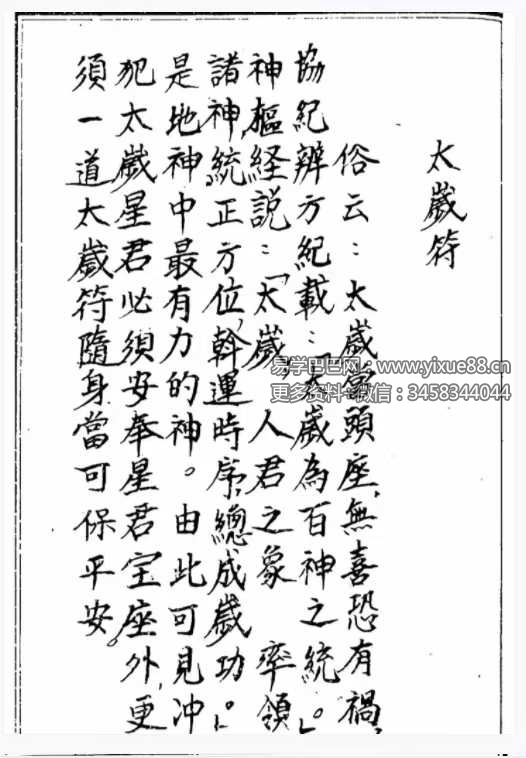 太歲符
俗云：太歲當頭座、無喜恐有禍、
協紀辨方紀載：「太歲為百神之統。」
神樞経説：「太歲，人君之象 率領
諸神，統正方位，斡運時序，總成歲功。」
是地神中最有力的神。由此可見冲
犯太歲星君必須安奉星君宝座外，更
須一道太歲符隨身當可保平安。
易学巴巴网：www.yixue88.cn
更多资料 微信：3458344044